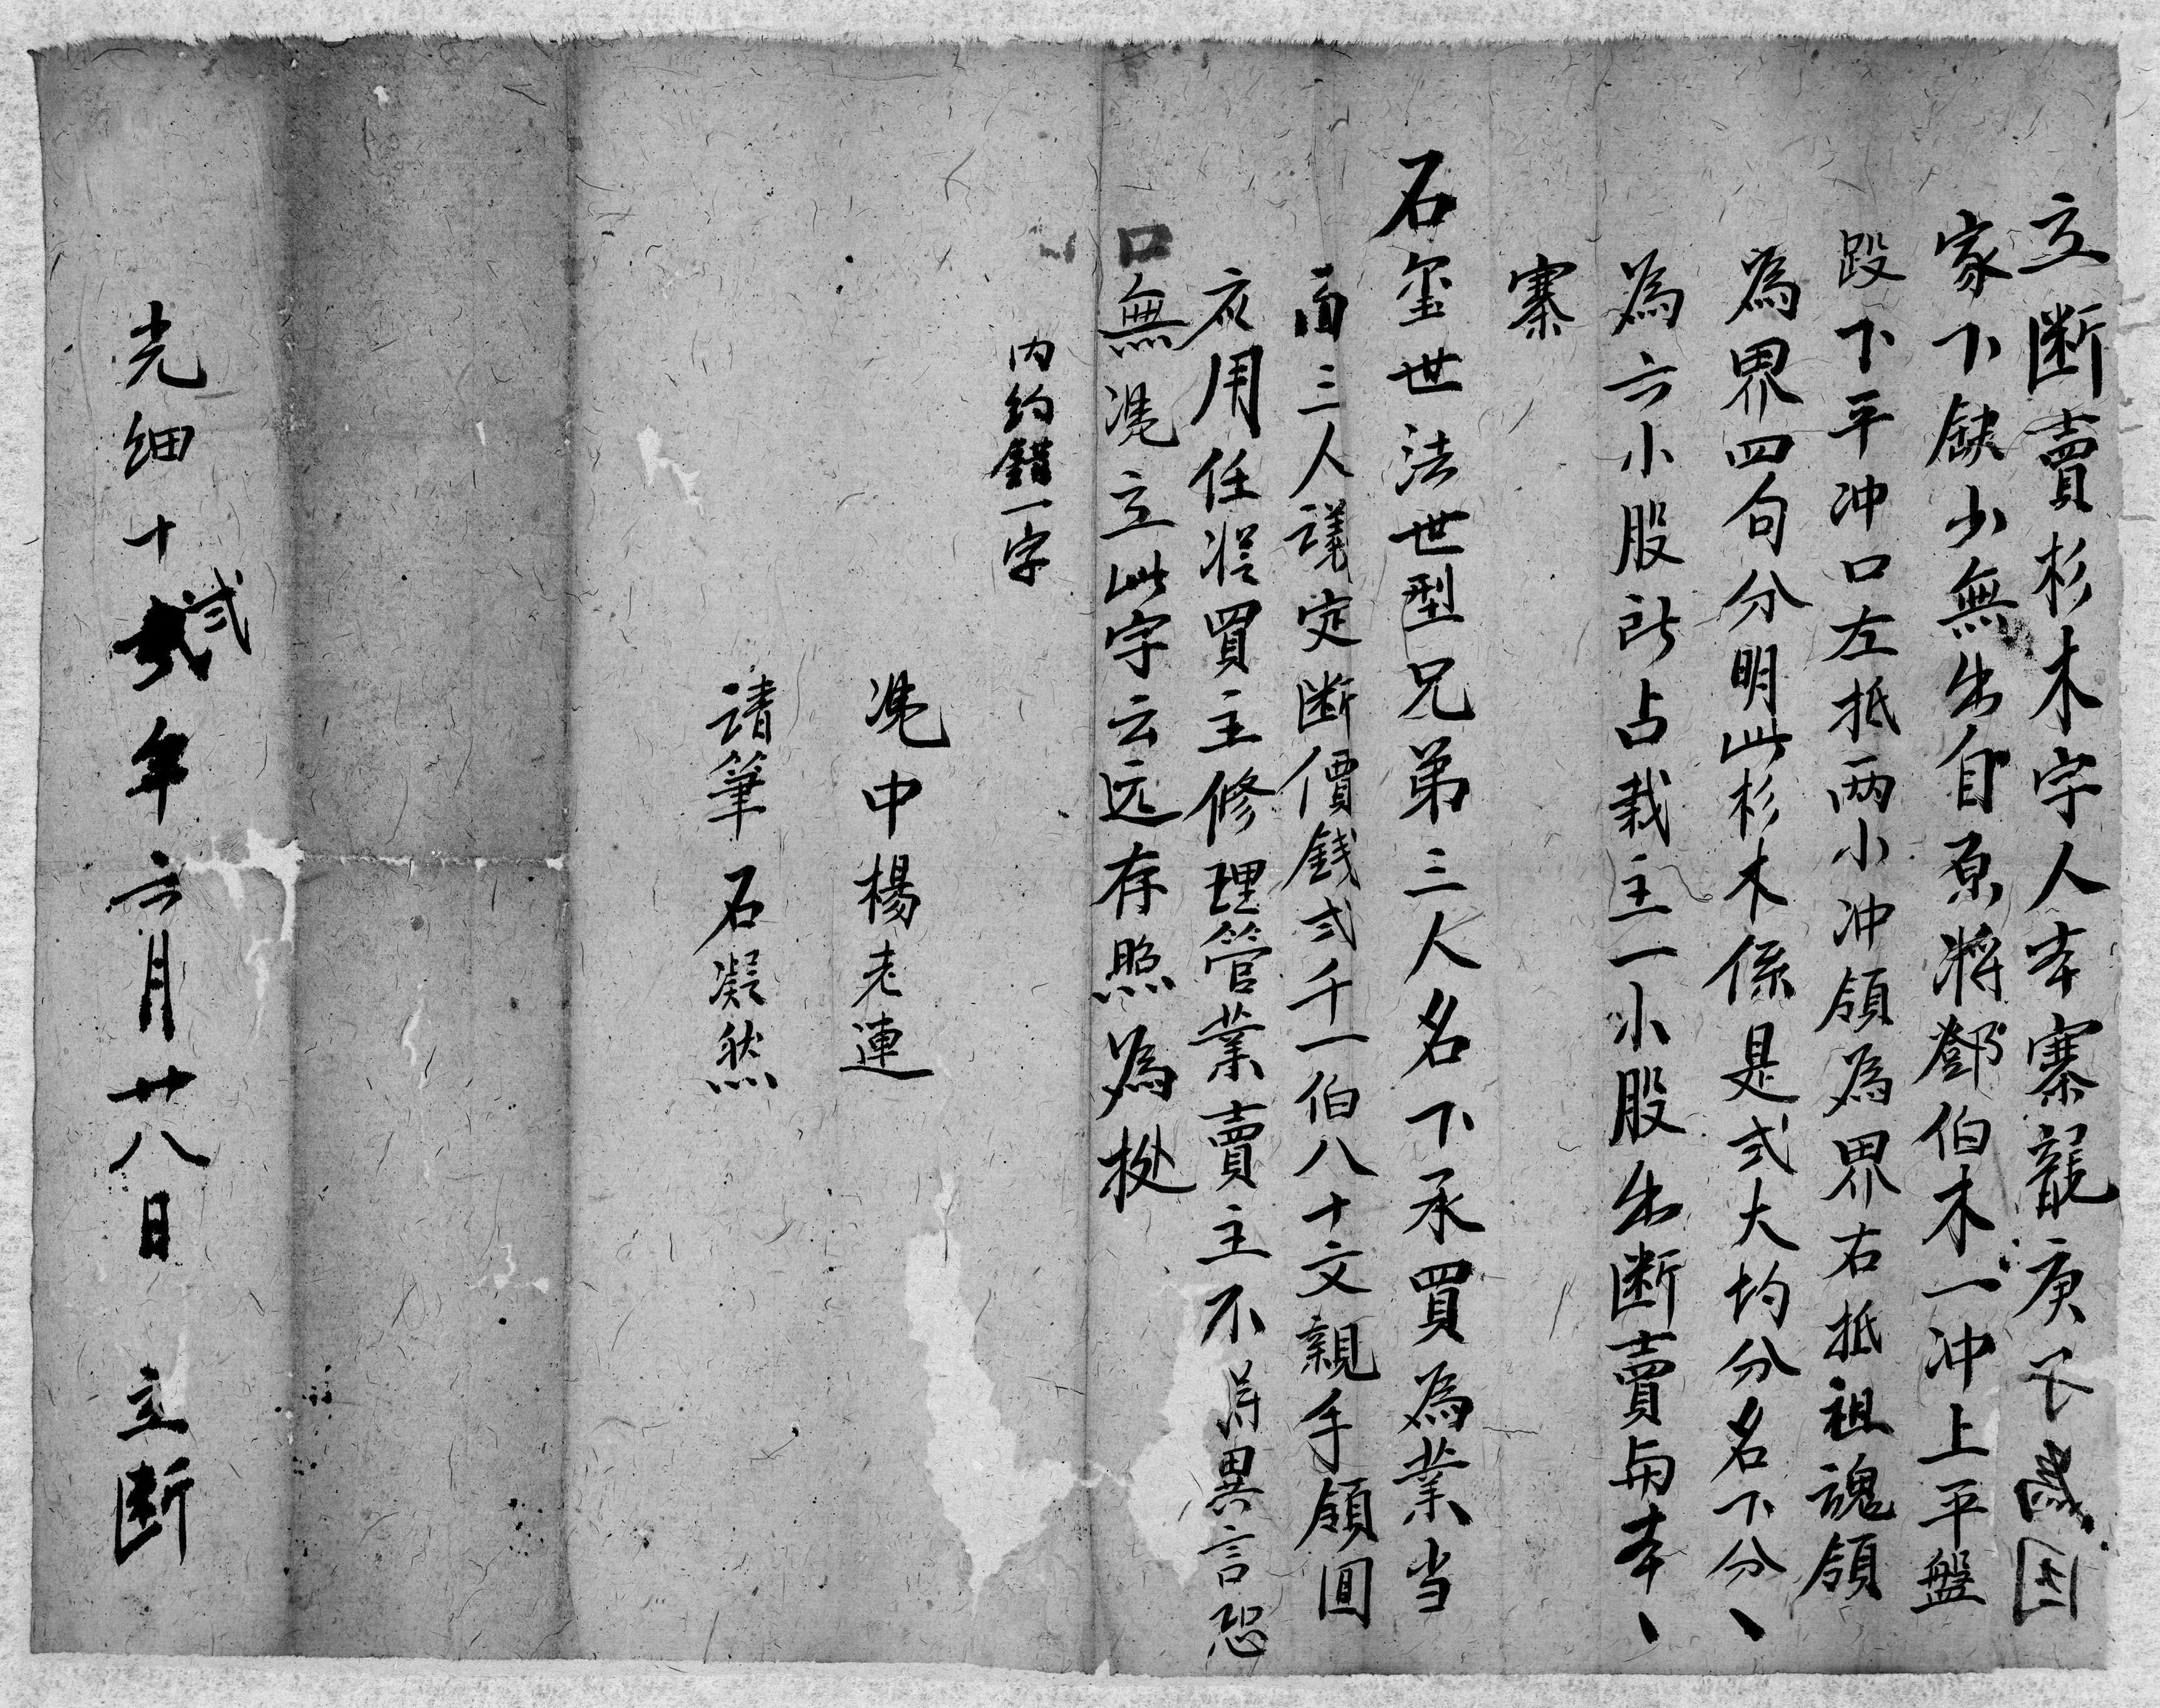 立断賣杉木字人夲寨龍庚长為因
家下缺少無出自愿將鄧伯木一冲上平盤
段下平冲口左抵两小冲領為界右抵祖魂領
為界四句分明此杉木係是弍大均分名下分丶
為六小股所占栽主一小股出断賣与夲丶
寨
石玺世法世型兄弟三人名下承買為業当
面三人議定断價錢弍千一伯八十文親手領回
应用任從買主修理管業賣主不得異言恐
口無凴立此字云远存照為㨿
内約錯一字
凴中楊老連
請筆石凝然
光绪十弍年六月廿八日 立断